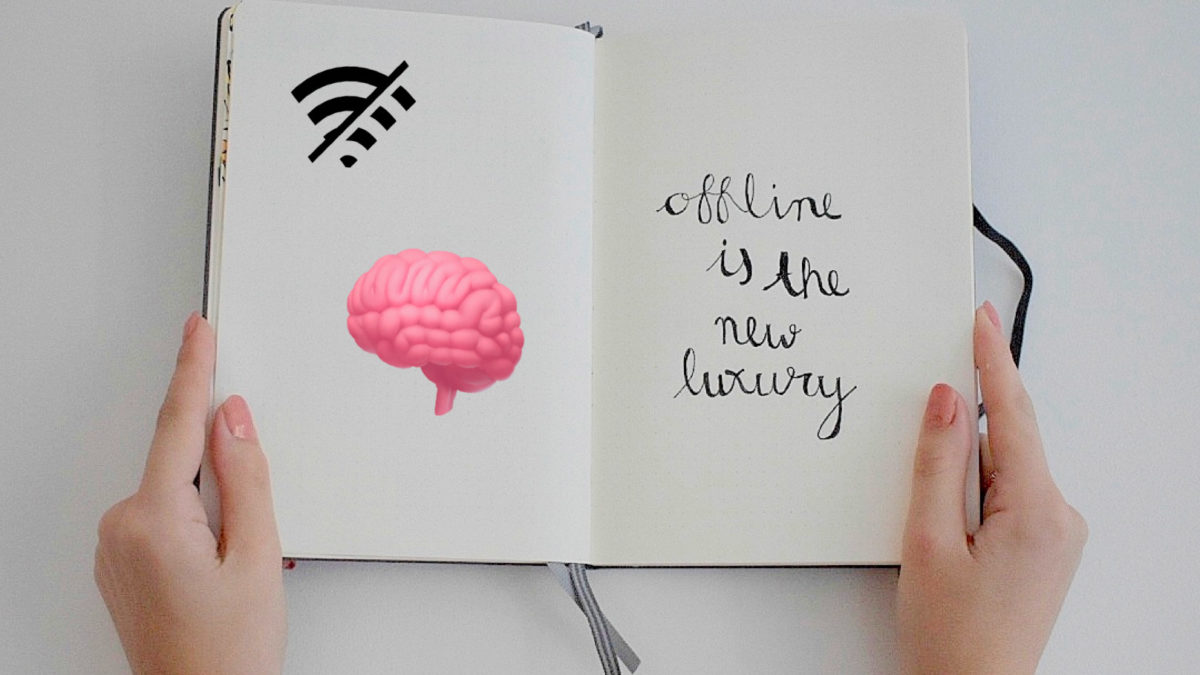 offline
is the
new
luxury